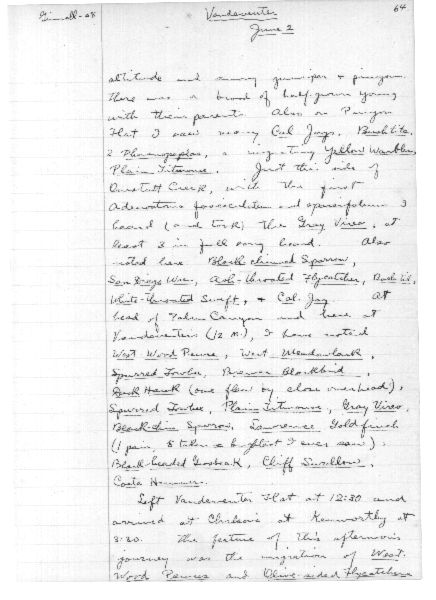 Grinnell-08
Vandeventer
64
June 2
altitude and sunny juniper & pinyon.
There was a brood of half-grown young
with their parents. Also on Pinyon
Flat I saw many Cal Jays, Bush-tits,
2 Phainopeplas, a migrating Yellow Warbler,
Plain Titmouse. Just this side of
Creek, with the first
Adenostoma fasciculatum and sparsifolium I
heard (and took) the Gray Vireo, at
least 3 in full song heard. Also
noted here Black-chinned Sparrow,
San Diego Wren, Ash-throated Flycatcher, Bush-tit,
White-throated Swift, & Cal. Jay. At
head of Palm Canyon and here at
Vandeventer's (12 M.), I have noted
West Wood Pewee, West Meadowlark,
Spurred Towhee, Brewer Blackbird,
Duck Hawk (one flew by close overhead),
Spurred Towhee, Plain Titmouse, Gray Vireo,
Black-chin Sparrow, Lawrence Goldfinch
(1 pair, ♂ taken & brightest I ever saw),
Black-headed Grosbeak, Cliff Swallow,
Costa Hummer.
Left Vandeventer Flat at 12:30 and
arrived at at Kenworthy at
3:30. The feature of this afternoon's
journey was the migration of West.
Wood Pewees and Olive-sided Flycatchers